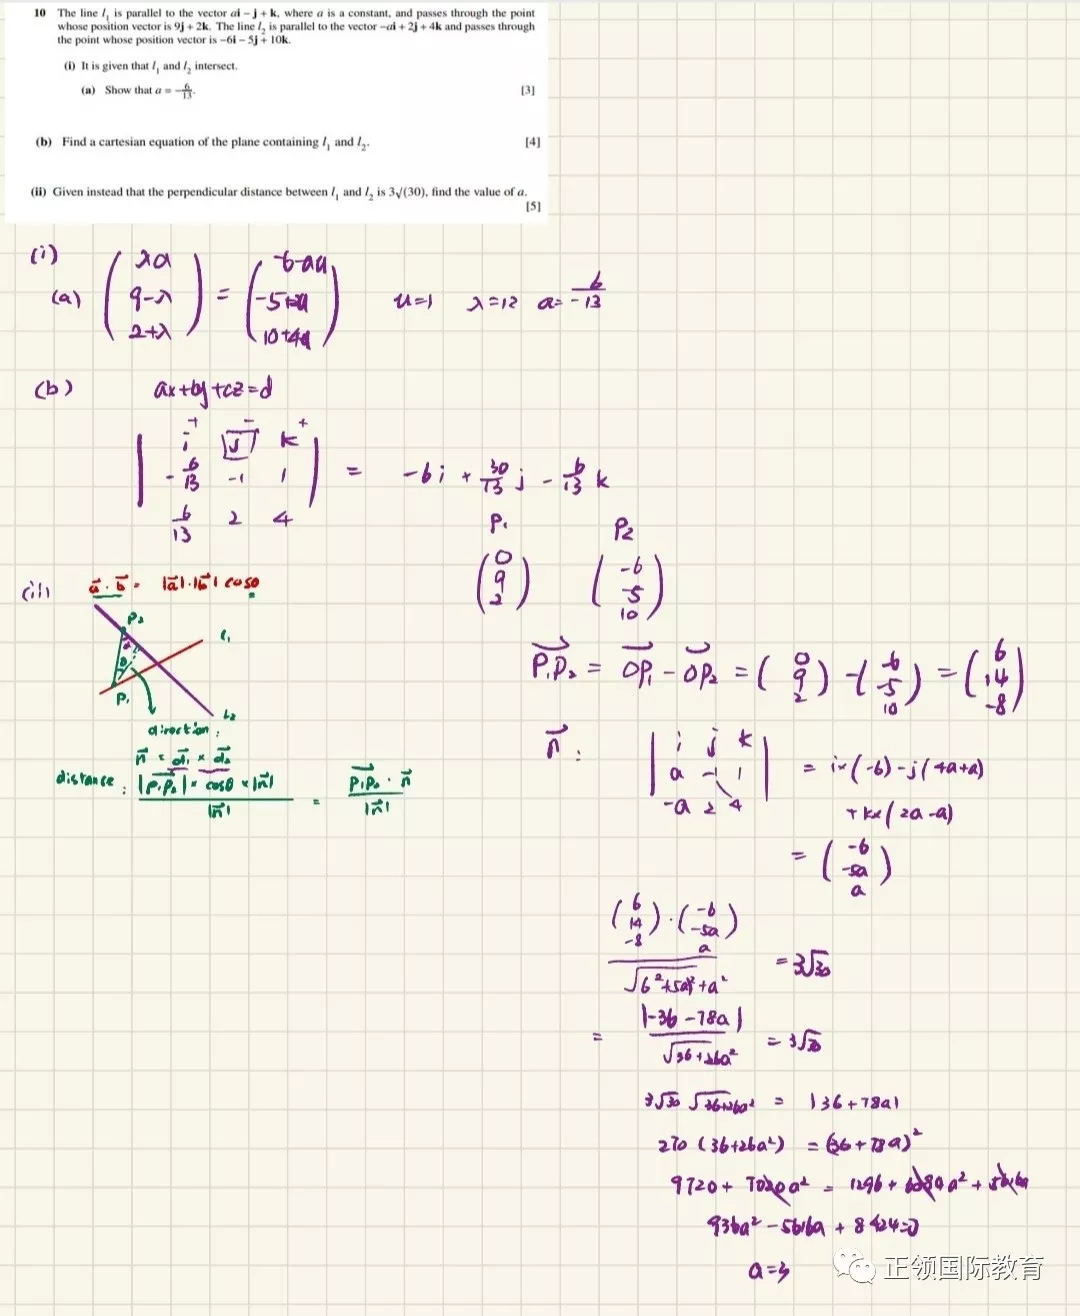 10 The line l₁ is parallel to the vector ai − j + k, where a is a constant, and passes through the point
whose position vector is 9j + 2k. The line l₂ is parallel to the vector −ai + 2j + 4k and passes through
the point whose position vector is −6i − 5j + 10k.
(i) It is given that l₁ and l₂ intersect.
(a) Show that a = −6/13. [3]
(b) Find a cartesian equation of the plane containing l₁ and l₂. [4]
(ii) Given instead that the perpendicular distance between l₁ and l₂ is 3√(30), find the value of a.
[5]
(i)
(a) (λa, 9-λ, 2+λ) = (-6-au, -5+2u, 10+4u) u=1 λ=12 a=-6/13
(b) ax+by+cz=d
| i j k |
| -6/13 -1 1 | = -6i + 30/13 j - 6/13 k
| 6/13 2 4 |
P₁ P₂
(0, 9, 2) (-6, -5, 10)
(ii) a⃗·b⃗ = |a⃗|·|b⃗| cosθ
P₂
l₁
P₁
l₂
direction:
n⃗ = d⃗₁ × d⃗₂
distance: |P₁P₂|× cosθ ×|n⃗| / |n⃗| = P₁P₂·n⃗ / |n⃗|
P₁P₂ = OP₁ - OP₂ = (0, 9, 2) - (-6, -5, 10) = (6, 14, -8)
n⃗:
| i j k |
| a -1 1 | = i×(-6)-j(4a+a)
| -a 2 4 | + k×(2a-a)
= (-6, -5a, a)
(6, 14, -8)·(-6, -5a, a) / √6²+(5a)²+a² = 3√30
= |-36-78a| / √36+26a² = 3√30
3√30 √36+26a² = |36+78a|
270(36+26a²) = (36+78a)²
9720+7020a² = 1296+6084a²+5616a
936a²-5616a+8424=0
a=3
正领国际教育